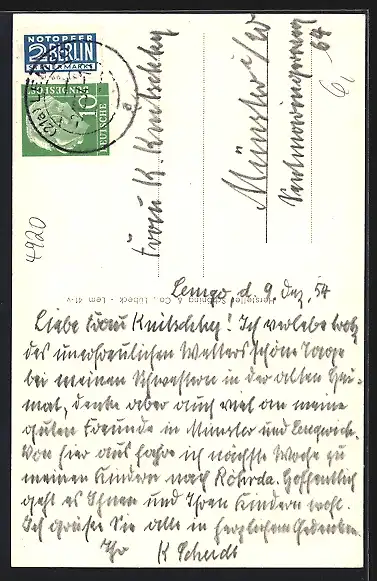 NOTOPFER
2 BERLIN
STEUERMARKE
10
DEUTSCHE
BUNDESPOST
Frau K. Knitschky
Münster i/W
64
4920
Hersteller Schöning & Co., Lübeck - Lem 41-v
Lemgo d. 9. Dez. 54
Liebe Frau Knitschky! Ich verlebe trotz
des unerfreulichen Wetters schöne Tage
bei meinen Schwestern in der alten Hei-
mat, denke aber auch viel an meine
guten Freunde in Münster und Lengerich.
Von hier aus fahre ich nächste Woche zu
meinen Kindern nach Röhrda. Hoffentlich
geht es Ihnen und Ihren Kindern wohl.
Ich grüße Sie alle in herzlichem Gedenken.
Ihr K Scheidt